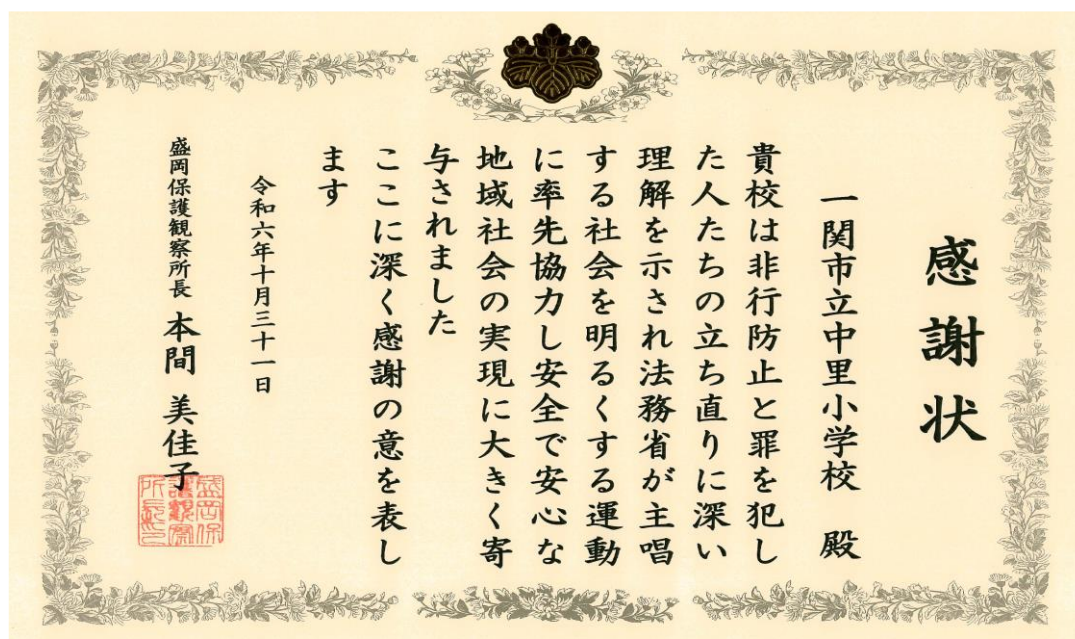 感謝状
一関市立中里小学校 殿
貴校は非行防止と罪を犯し
た人たちの立ち直りに深い
理解を示され法務省が主唱
する社会を明るくする運動
に率先協力し安全で安心な
地域社会の実現に大きく寄
与されました
ここに深く感謝の意を表し
ます
令和六年十月三十一日
盛岡保護観察所長 本間 美佳子
盛岡保
護観察
所長印